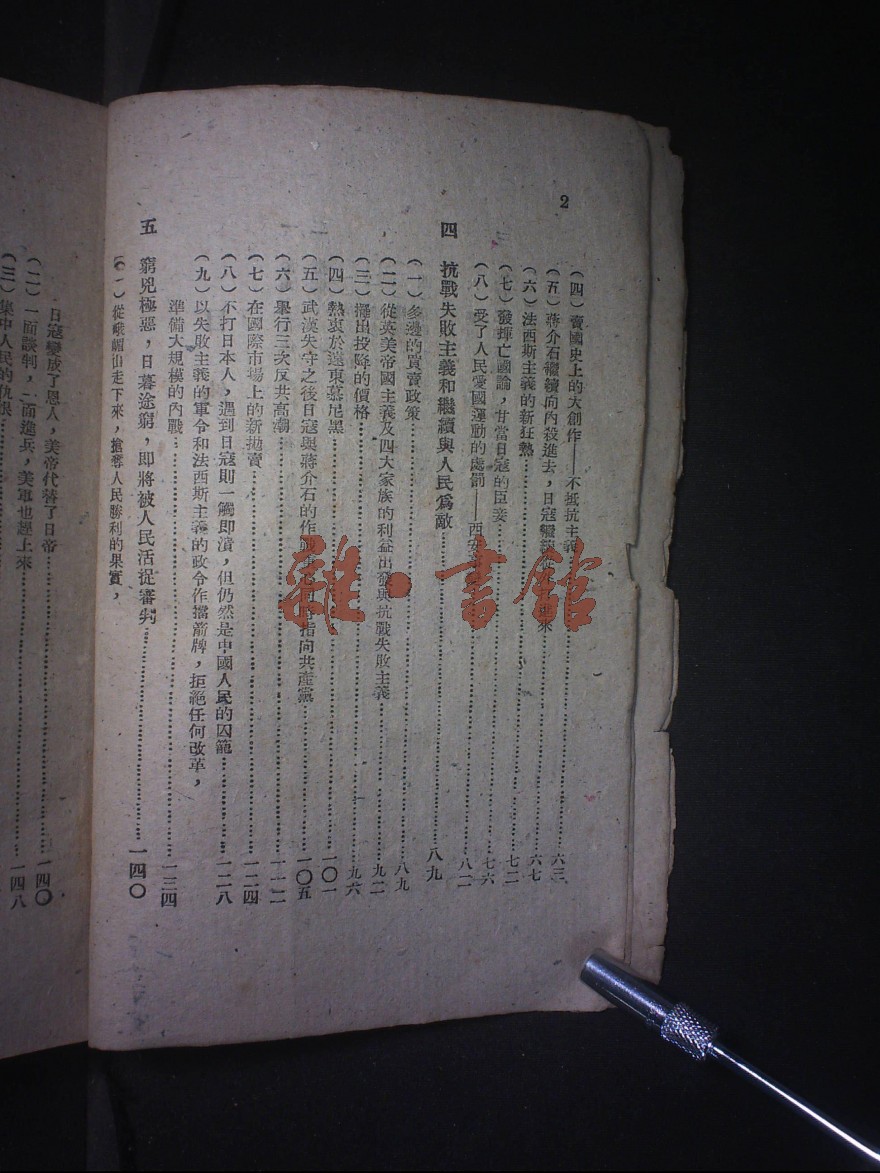 2
（四）賣國史上的大創作——不抵抗主義……六三
（五）蔣介石繼續向內殺進去，日寇繼續從外打進來……六七
（六）法西斯主義的新狂熱……七二
（七）發揮亡國論，甘當日寇的臣妾……七六
（八）受了人民愛國運動的處罰——西安……八二
四 抗戰失敗主義和繼續與人民爲敵……八九
（一）多邊的買賣政策……八九
（二）從英美帝國主義及四大家族的利益出發與抗戰失敗主義……九二
（三）擺出投降的價格……九六
（四）熱衷於遠東慕尼黑……一〇一
（五）武漢失守之後日寇與蔣介石的作戰 指向共產黨……一〇五
（六）舉行三次反共高潮……一一二
（七）在國際市場上的新拋賣……一二四
（八）不打日本人，遇到日寇則一觸即潰，但仍然是中國人民的囚籠……一二八
（九）以失敗主義的軍令和法西斯主義的政令作擋箭牌，拒絕任何改革，
準備大規模的內戰……一三四
五 窮兇極惡，日暮途窮，即將被人民活捉審判……一四〇
（一）從峨嵋山走下來，搶奪人民勝利的果實，
日寇變成了恩人，美帝代替了日帝……一四〇
（二）一面談判，一面進兵，美軍也趕上來……一四八
（三）集中人民的仇恨
雜·書館